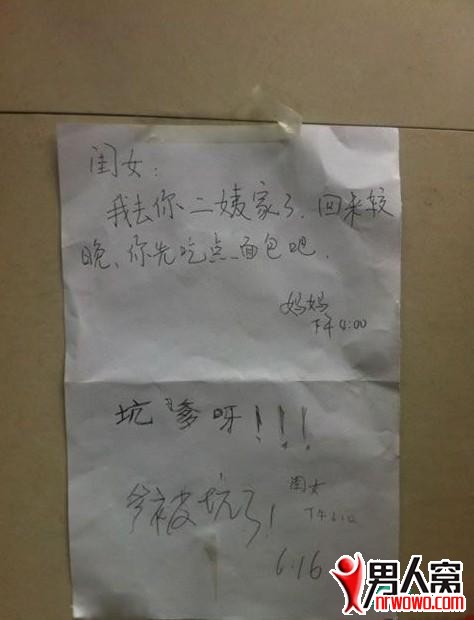 闺女：
我去你二姨家了，回来较
晚、你先吃点面包吧．
妈妈
下午4:00
坑爹呀！！！
闺女
下午6:10
爷被坑了！
6:16
男人窝
nrwowo.com